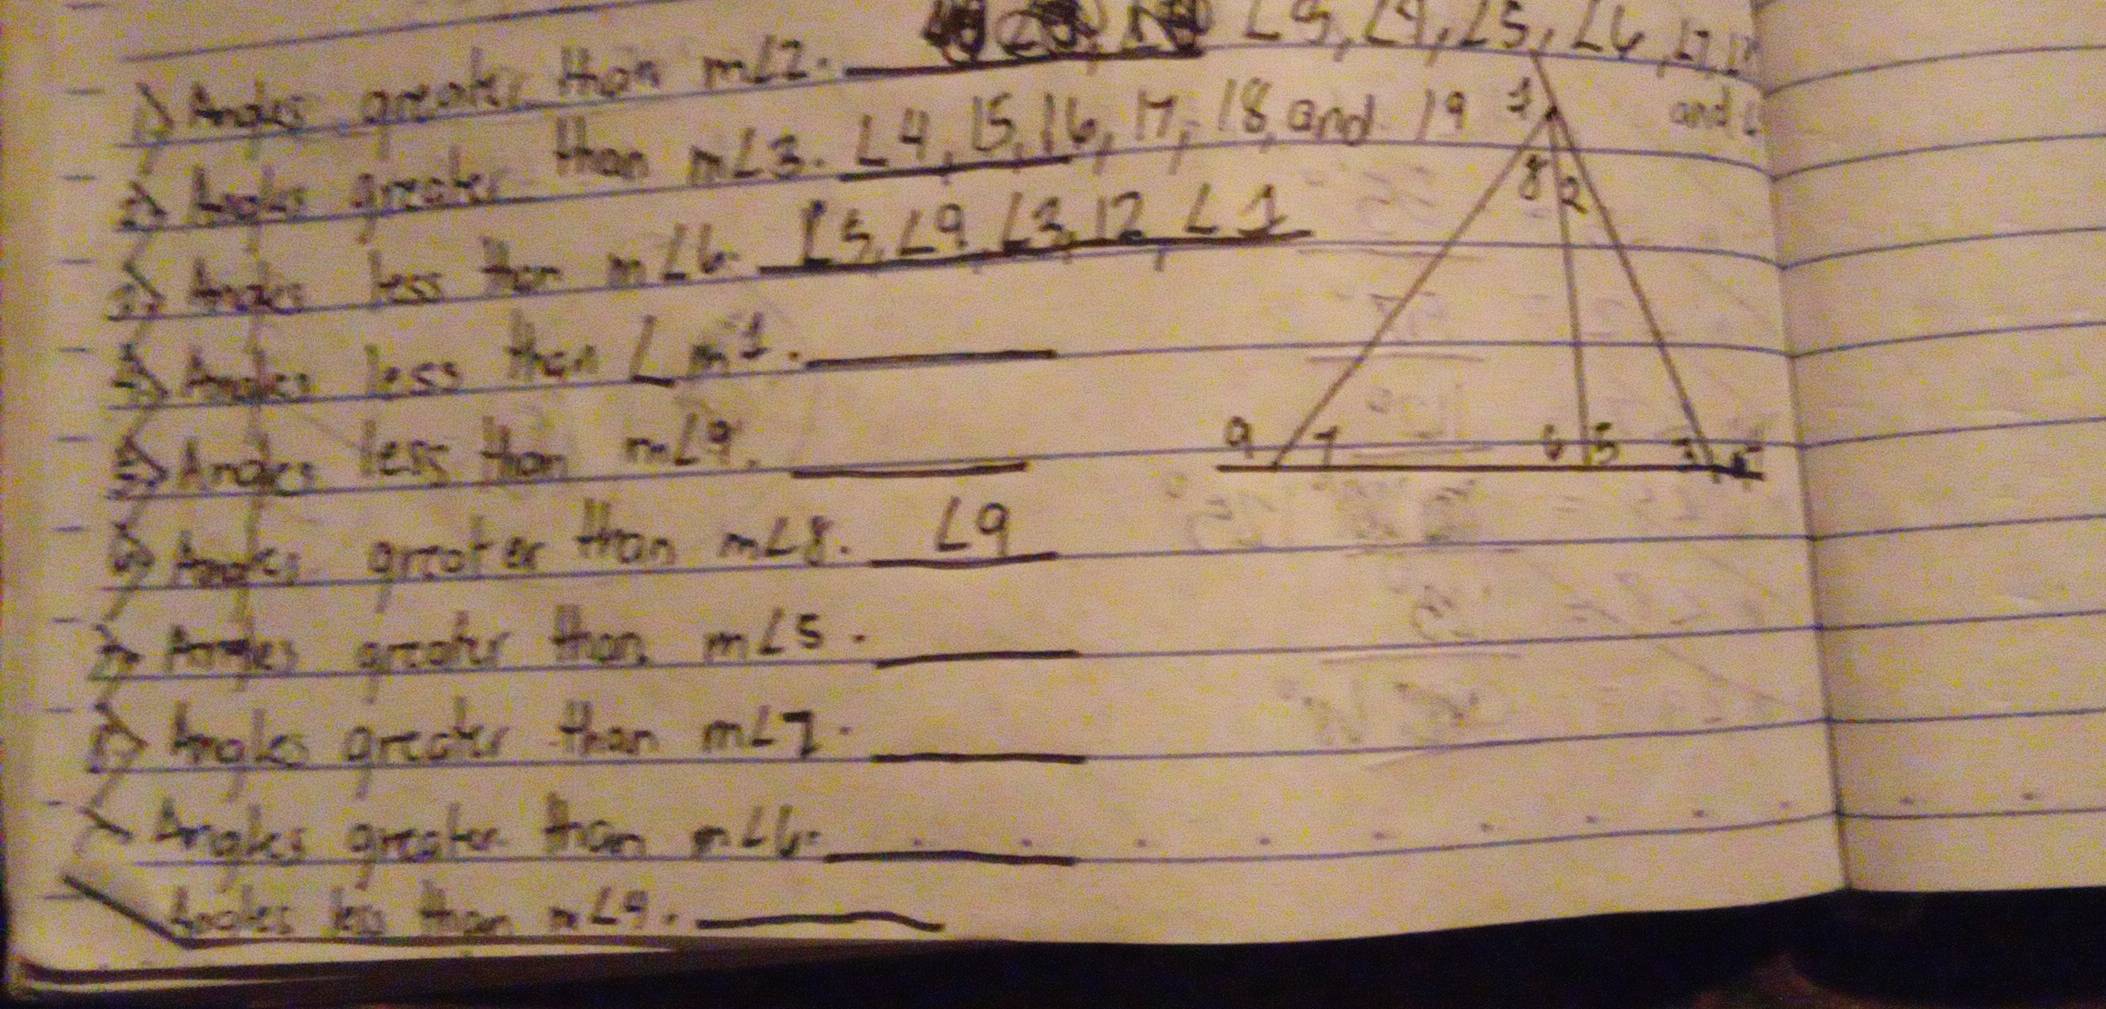 ∠3, ∠4, ∠5, ∠6, ∠7,
1) Angles greater than m∠2.
and
2) Angles greater than m∠3. ∠4, ∠5, ∠6, ∠7, ∠8, and ∠9
3) Angles less than m∠6. ∠5, ∠9, ∠3, ∠2, ∠1
4) Angles less than ∠m1.
5) Angles less than m∠9.
6) Angles greater than m∠8. ∠9
7) Angles greater than m∠5.
8) Angles greater than m∠7.
Angles greater than m∠6.
Angles less than m∠9.
1
8 2
9 7 6 5 3